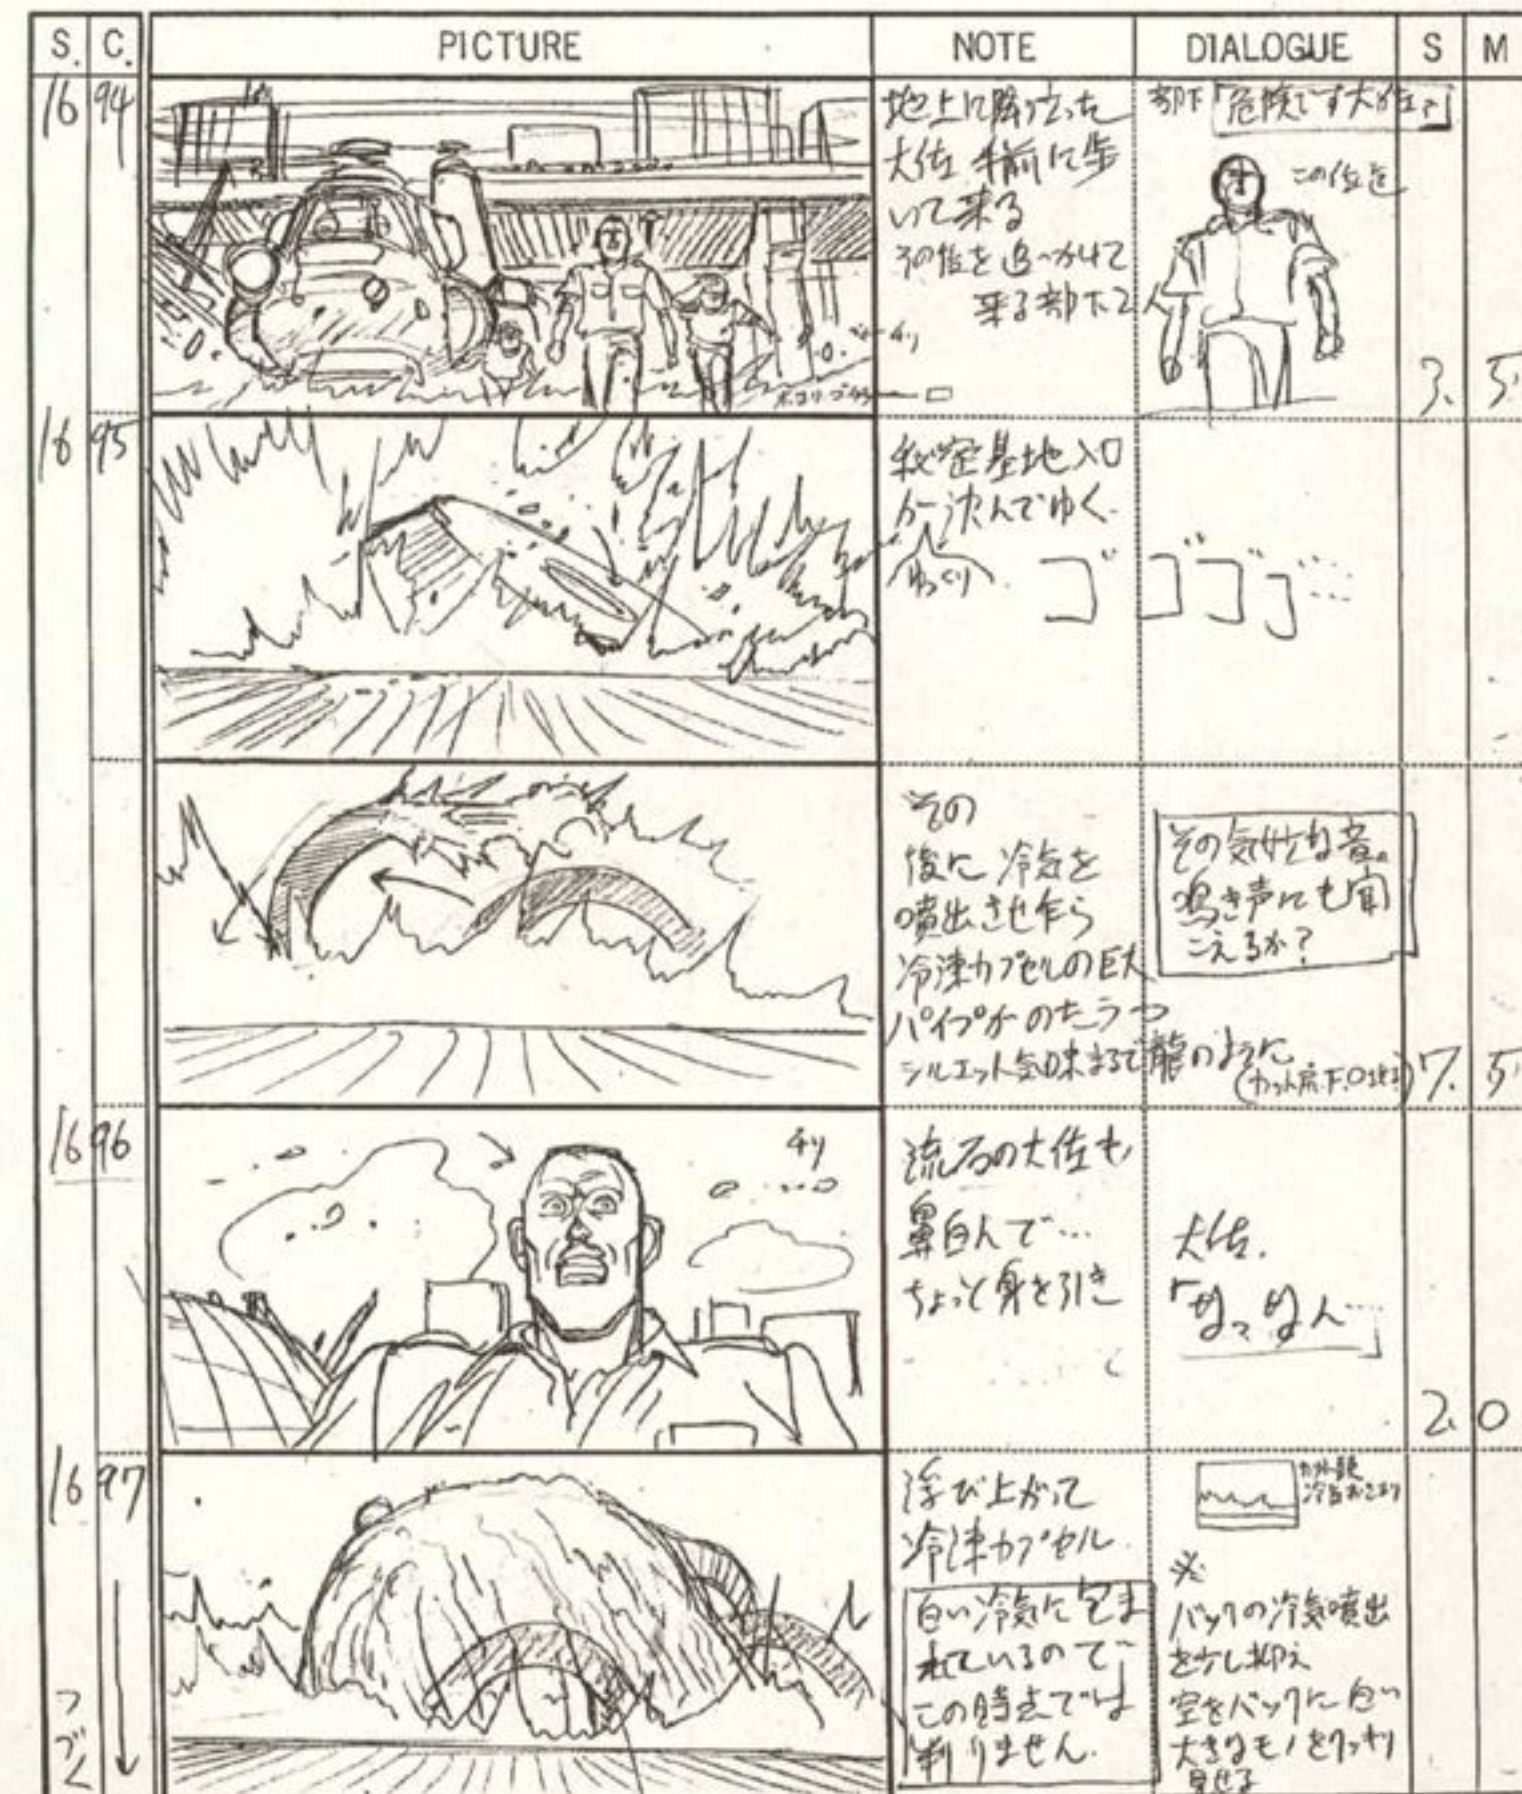 S. C. PICTURE NOTE DIALOGUE S M
16 94
地上に降り立った
大佐 手前に歩
いて来る
その後を追っかけて
来る部下2人
部下「危険です大佐っ」
この位を
チリ
3. 5
16 95
秘密基地入口
が沈んでゆく.
ゆっくり
ゴゴゴゴ……
その
後に 冷気を
噴出させ乍ら
冷凍カプセルの巨大
パイプが のたうつ
シルエット気味まるで龍のように
その気せな音。
鳴き声にも聞
こえるか?
7. 5
16 96
チリ
流石の大佐も
鼻白んで…
ちょっと身を引き
大佐.
「なっなん…」
2. 0
16 97
つづく
浮び上がって
冷凍カプセル
白い冷気に包ま
れているので
この時点では
判りません.
※
バックの冷気噴出
を少し抑え
空をバックに白い
大きなモノをクッキリ
見せる